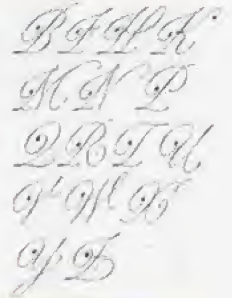 B F H K
M N P
Q R T U
V W X
Y Z